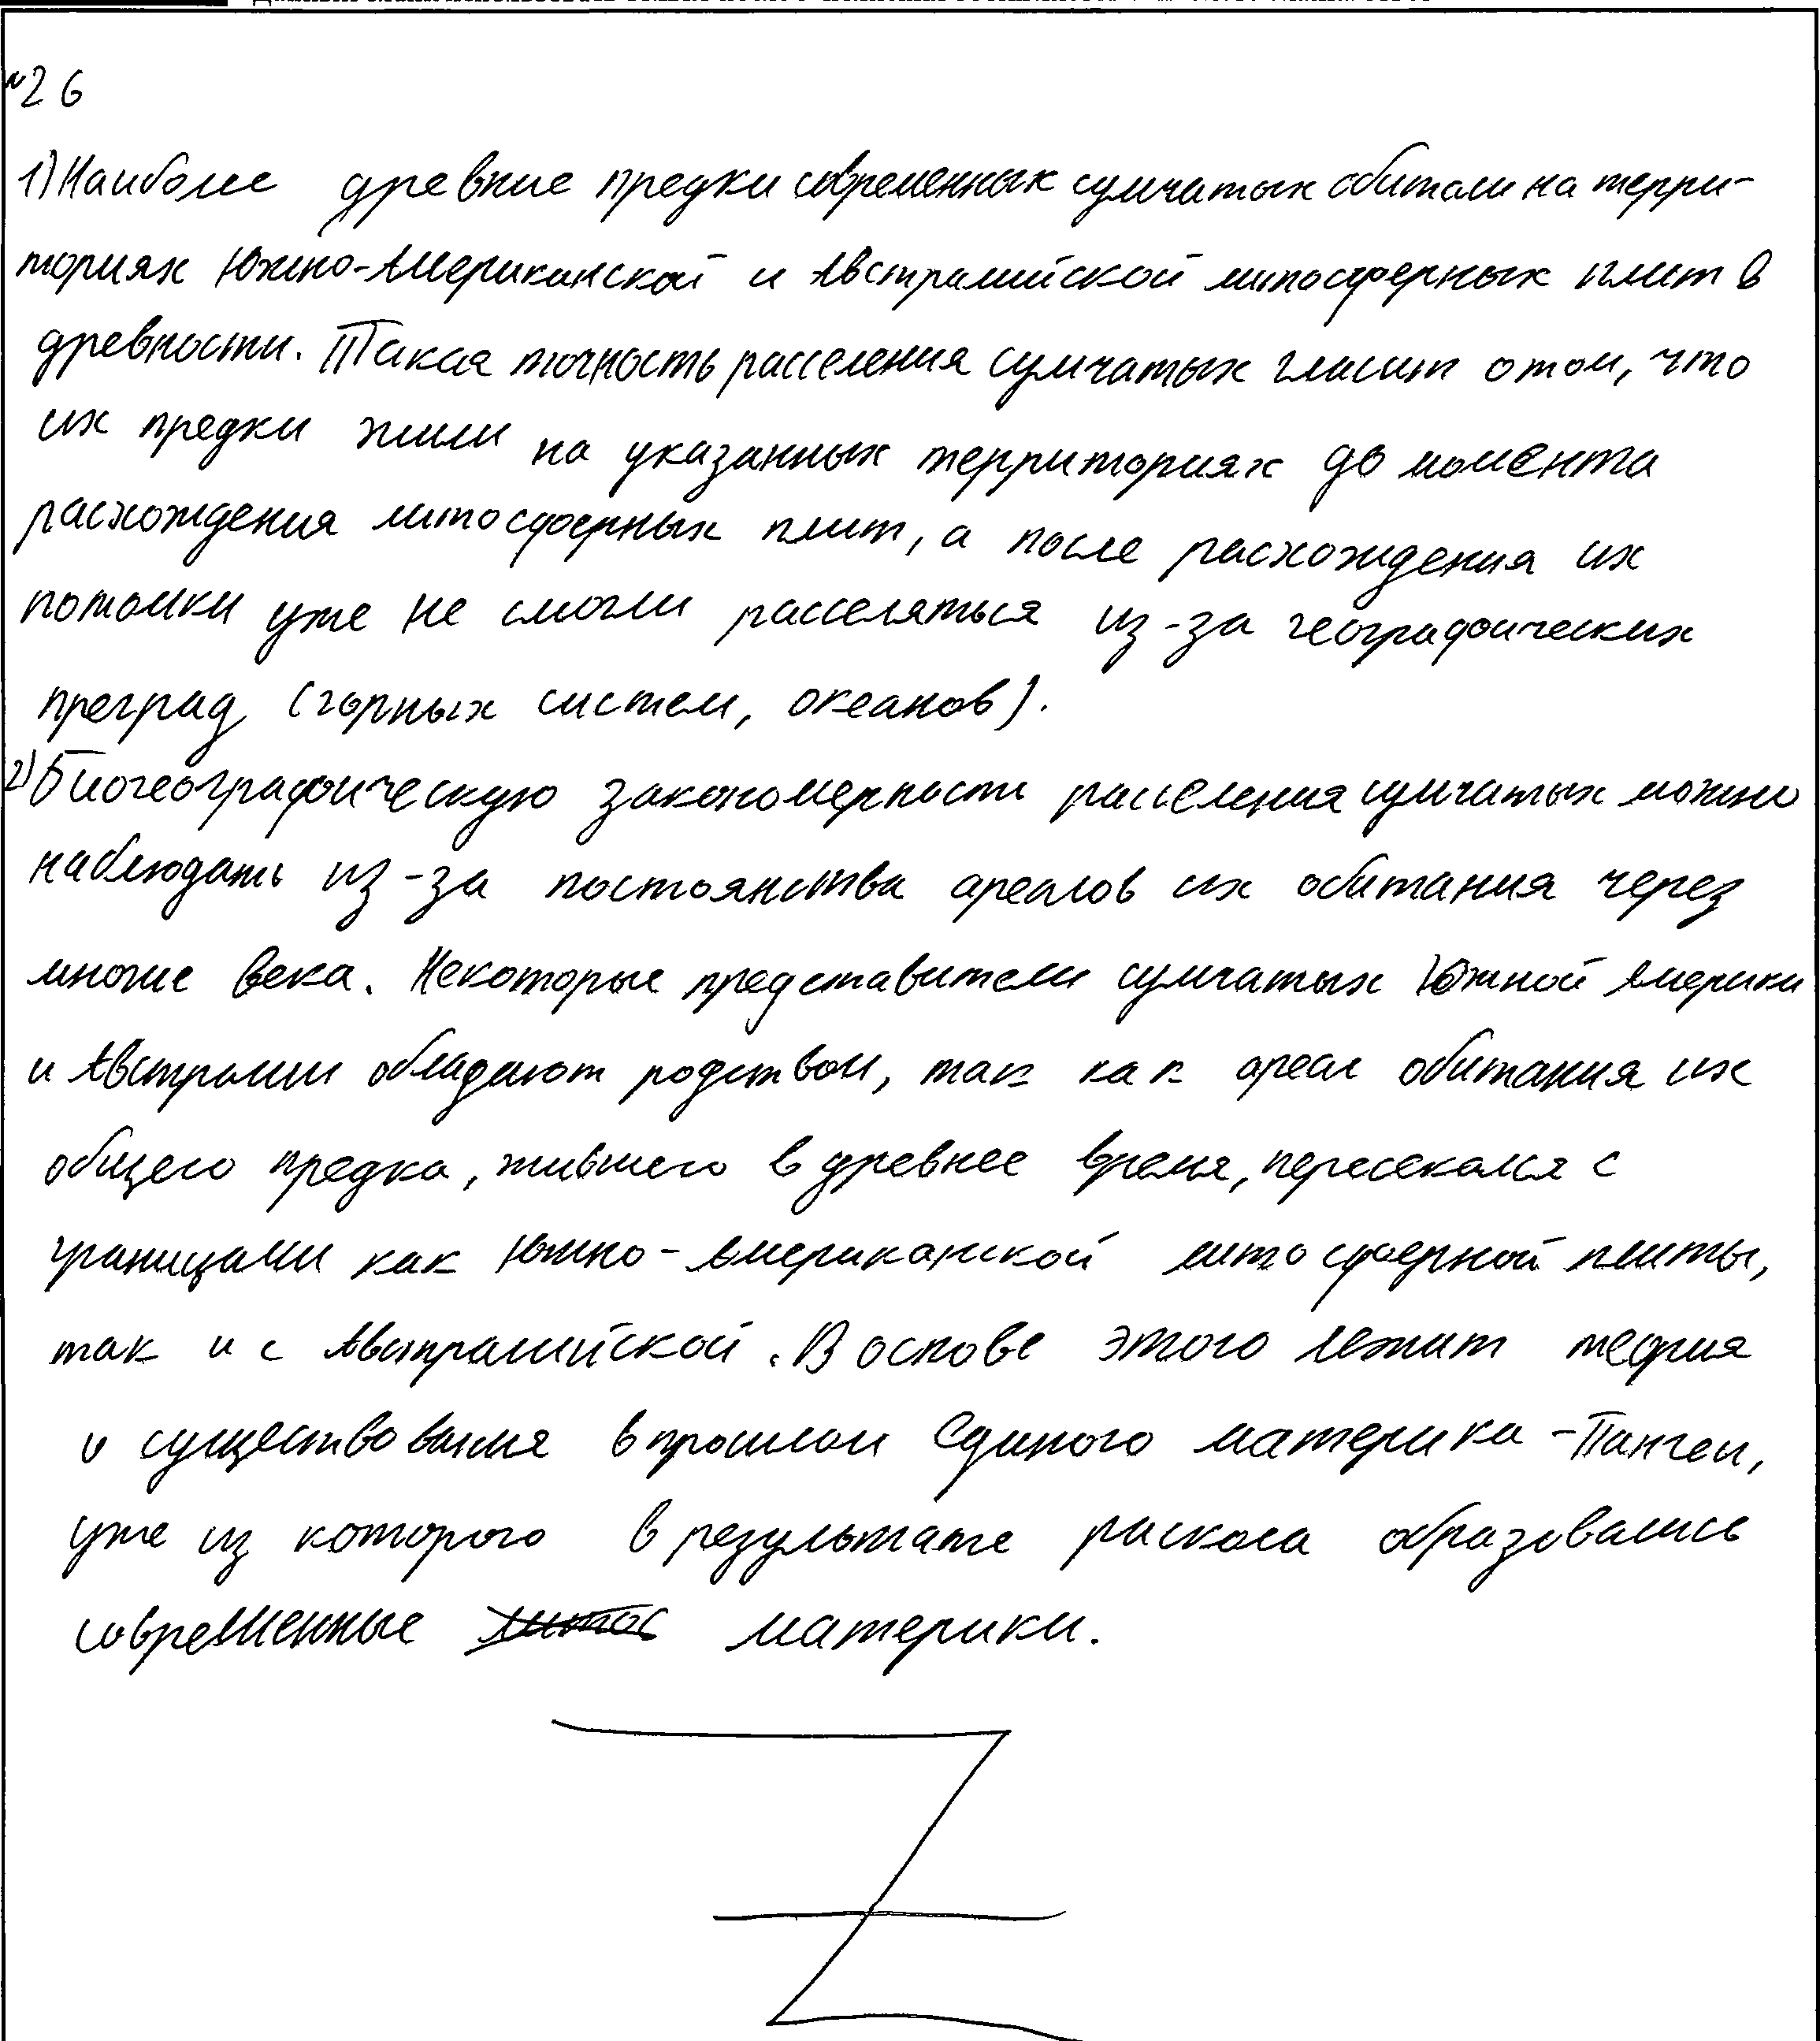 №26
1) Наиболее древние предки современных сумчатых обитали на терри-
ториях Южно-Американской и Австралийской литосферных плит в
древности. Такая точность расселения сумчатых гласит о том, что
их предки жили на указанных территориях до момента
расхождения литосферных плит, а после расхождения их
потомки уже не смогли расселяться из-за географических
преград (горных систем, океанов).
2) Биогеографическую закономерности расселения сумчатых можно
наблюдать из-за постоянства ареалов их обитания через
многие века. Некоторые представители сумчатых Южной Америки
и Австралии обладают родством, так как ареал обитания их
общего предка, жившего в древнее время, пересекался с
границами как Южно-Американской литосферной плиты,
так и с Австралийской. В основе этого лежит теория
о существования в прошлом Единого материка - Пангеи,
уже из которого в результате раскола образовались
современные литос материки.